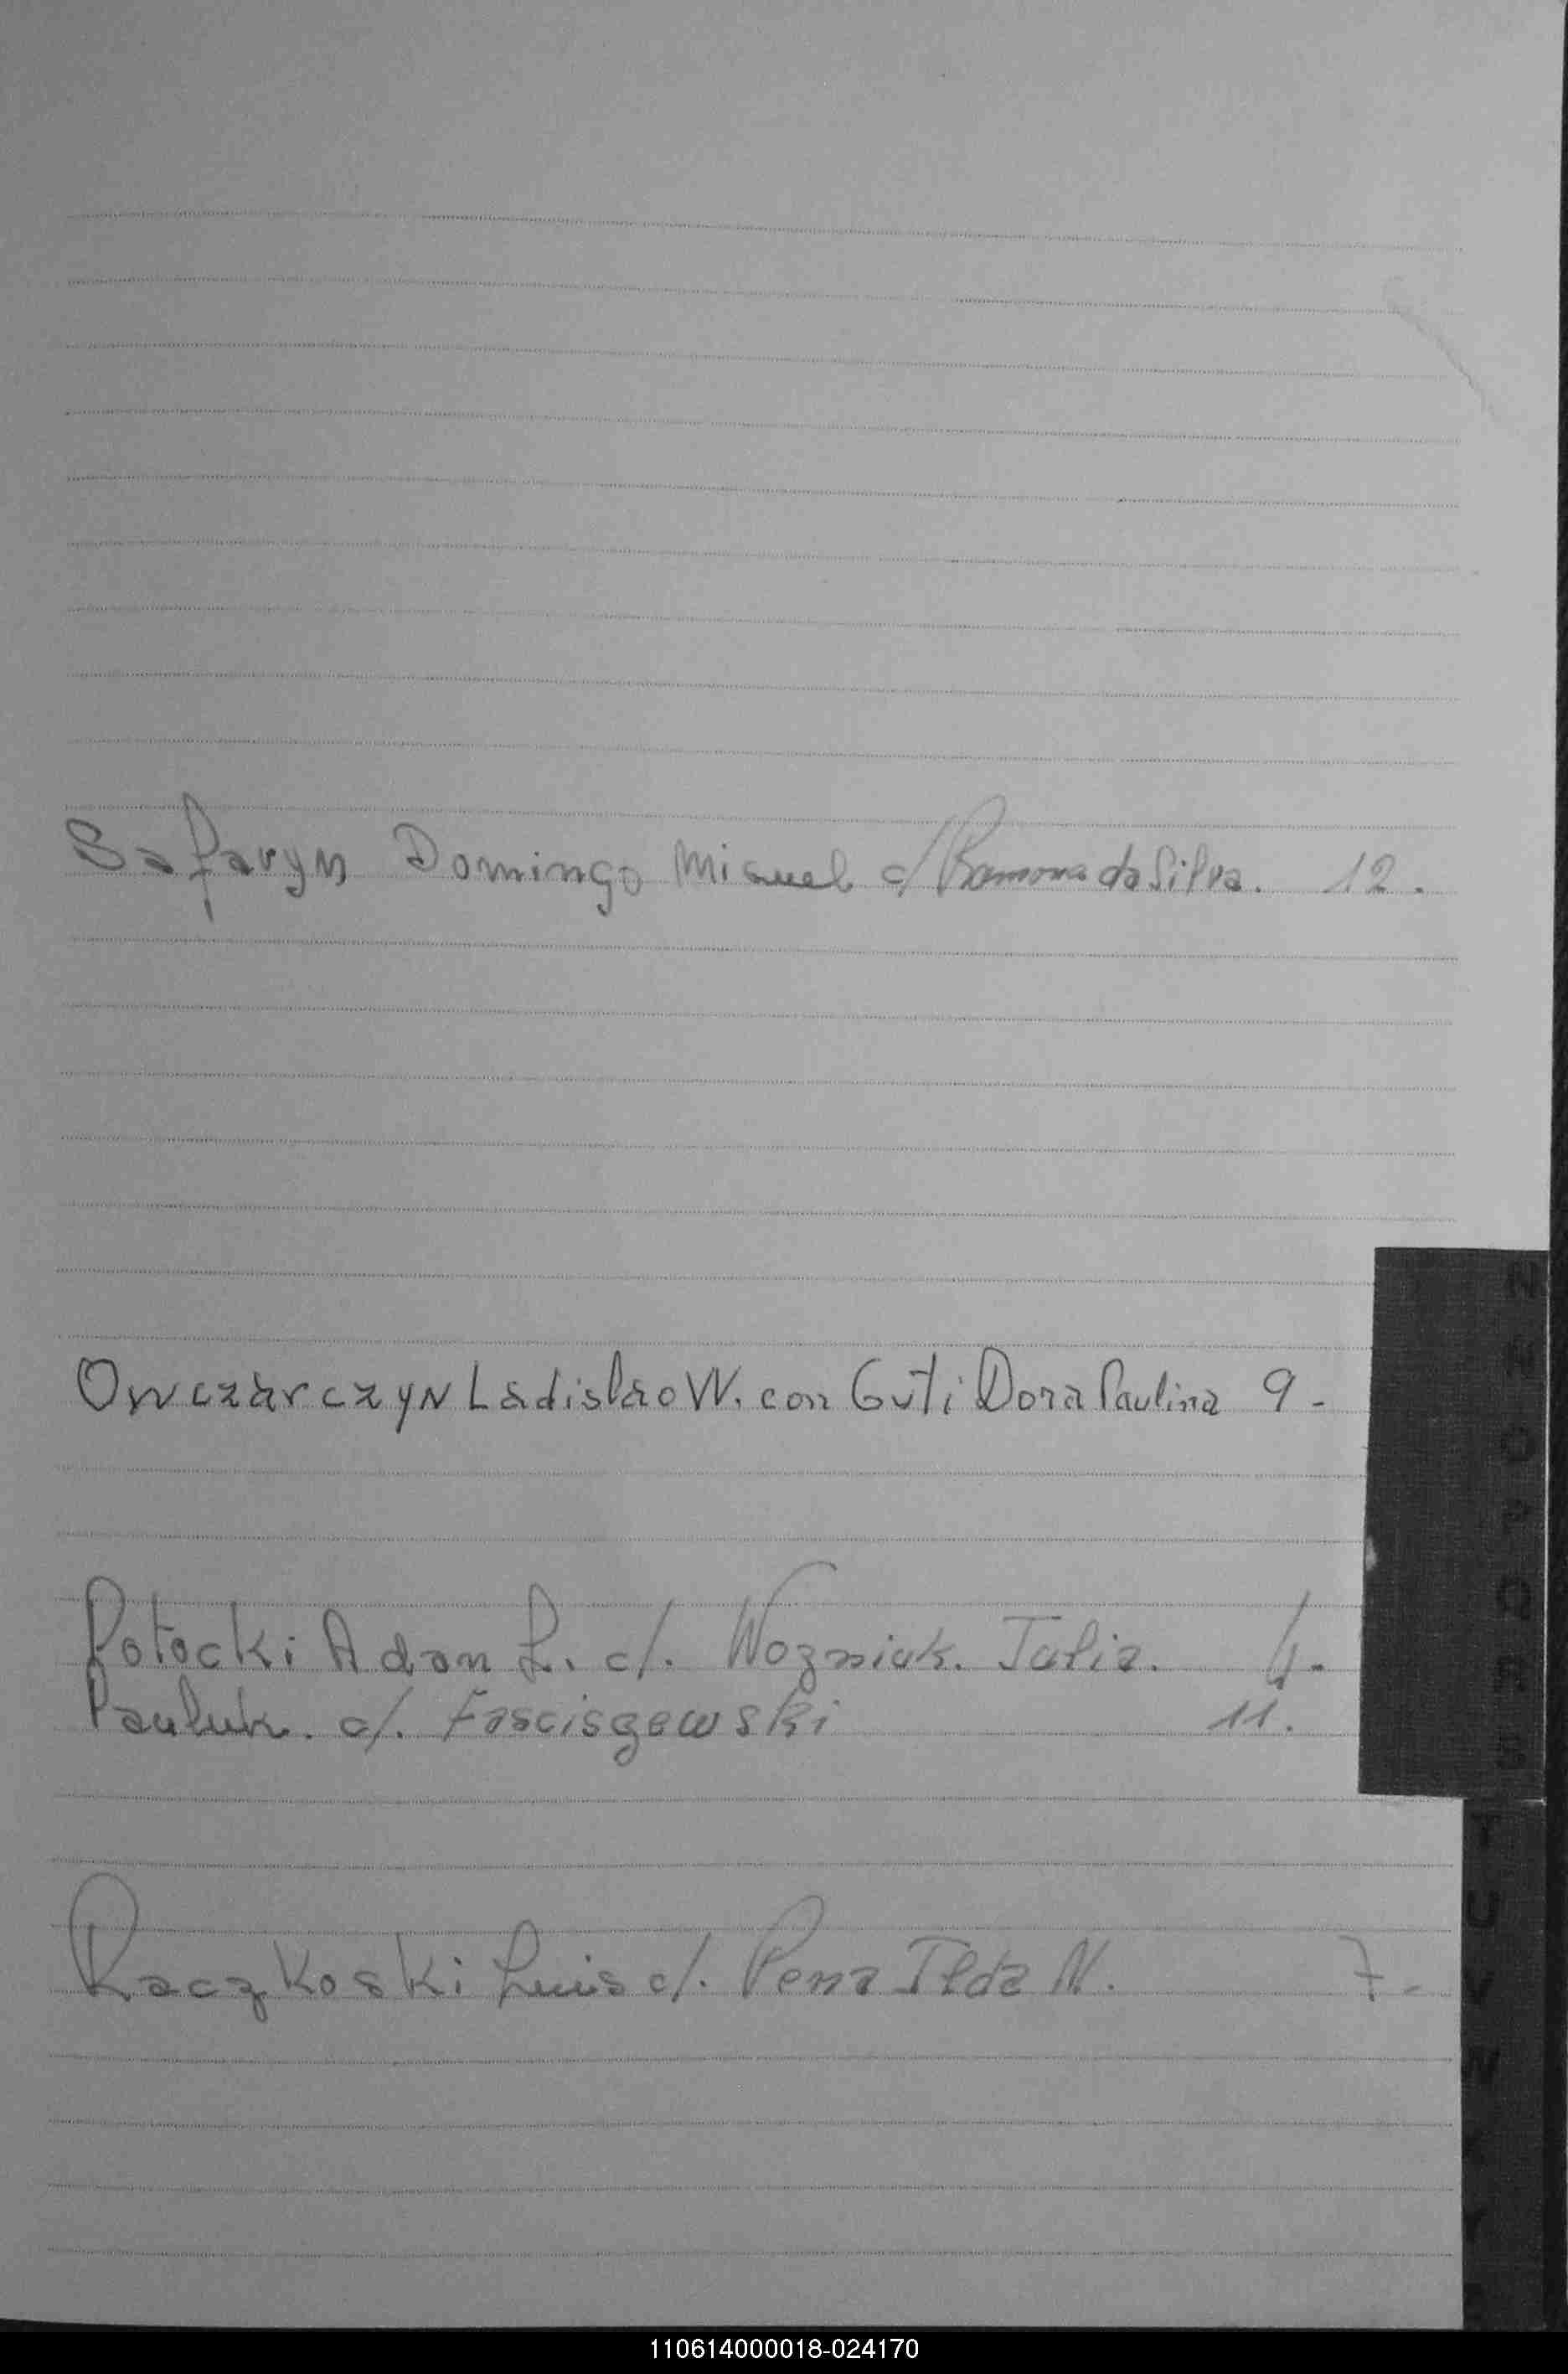 Safaryn Domingo Miguel c/ Ramona da Silva. 12.
Owczarczyn Ladislao W. con Guti Dora Paulina 9-
Potocki Adam L. c/. Wozniak. Julia. 4.
Pauluk. c/. Fasciszewski 11.
Raczkoski Luis c/. Pena Ilda N. 7.-
110614000018-024170